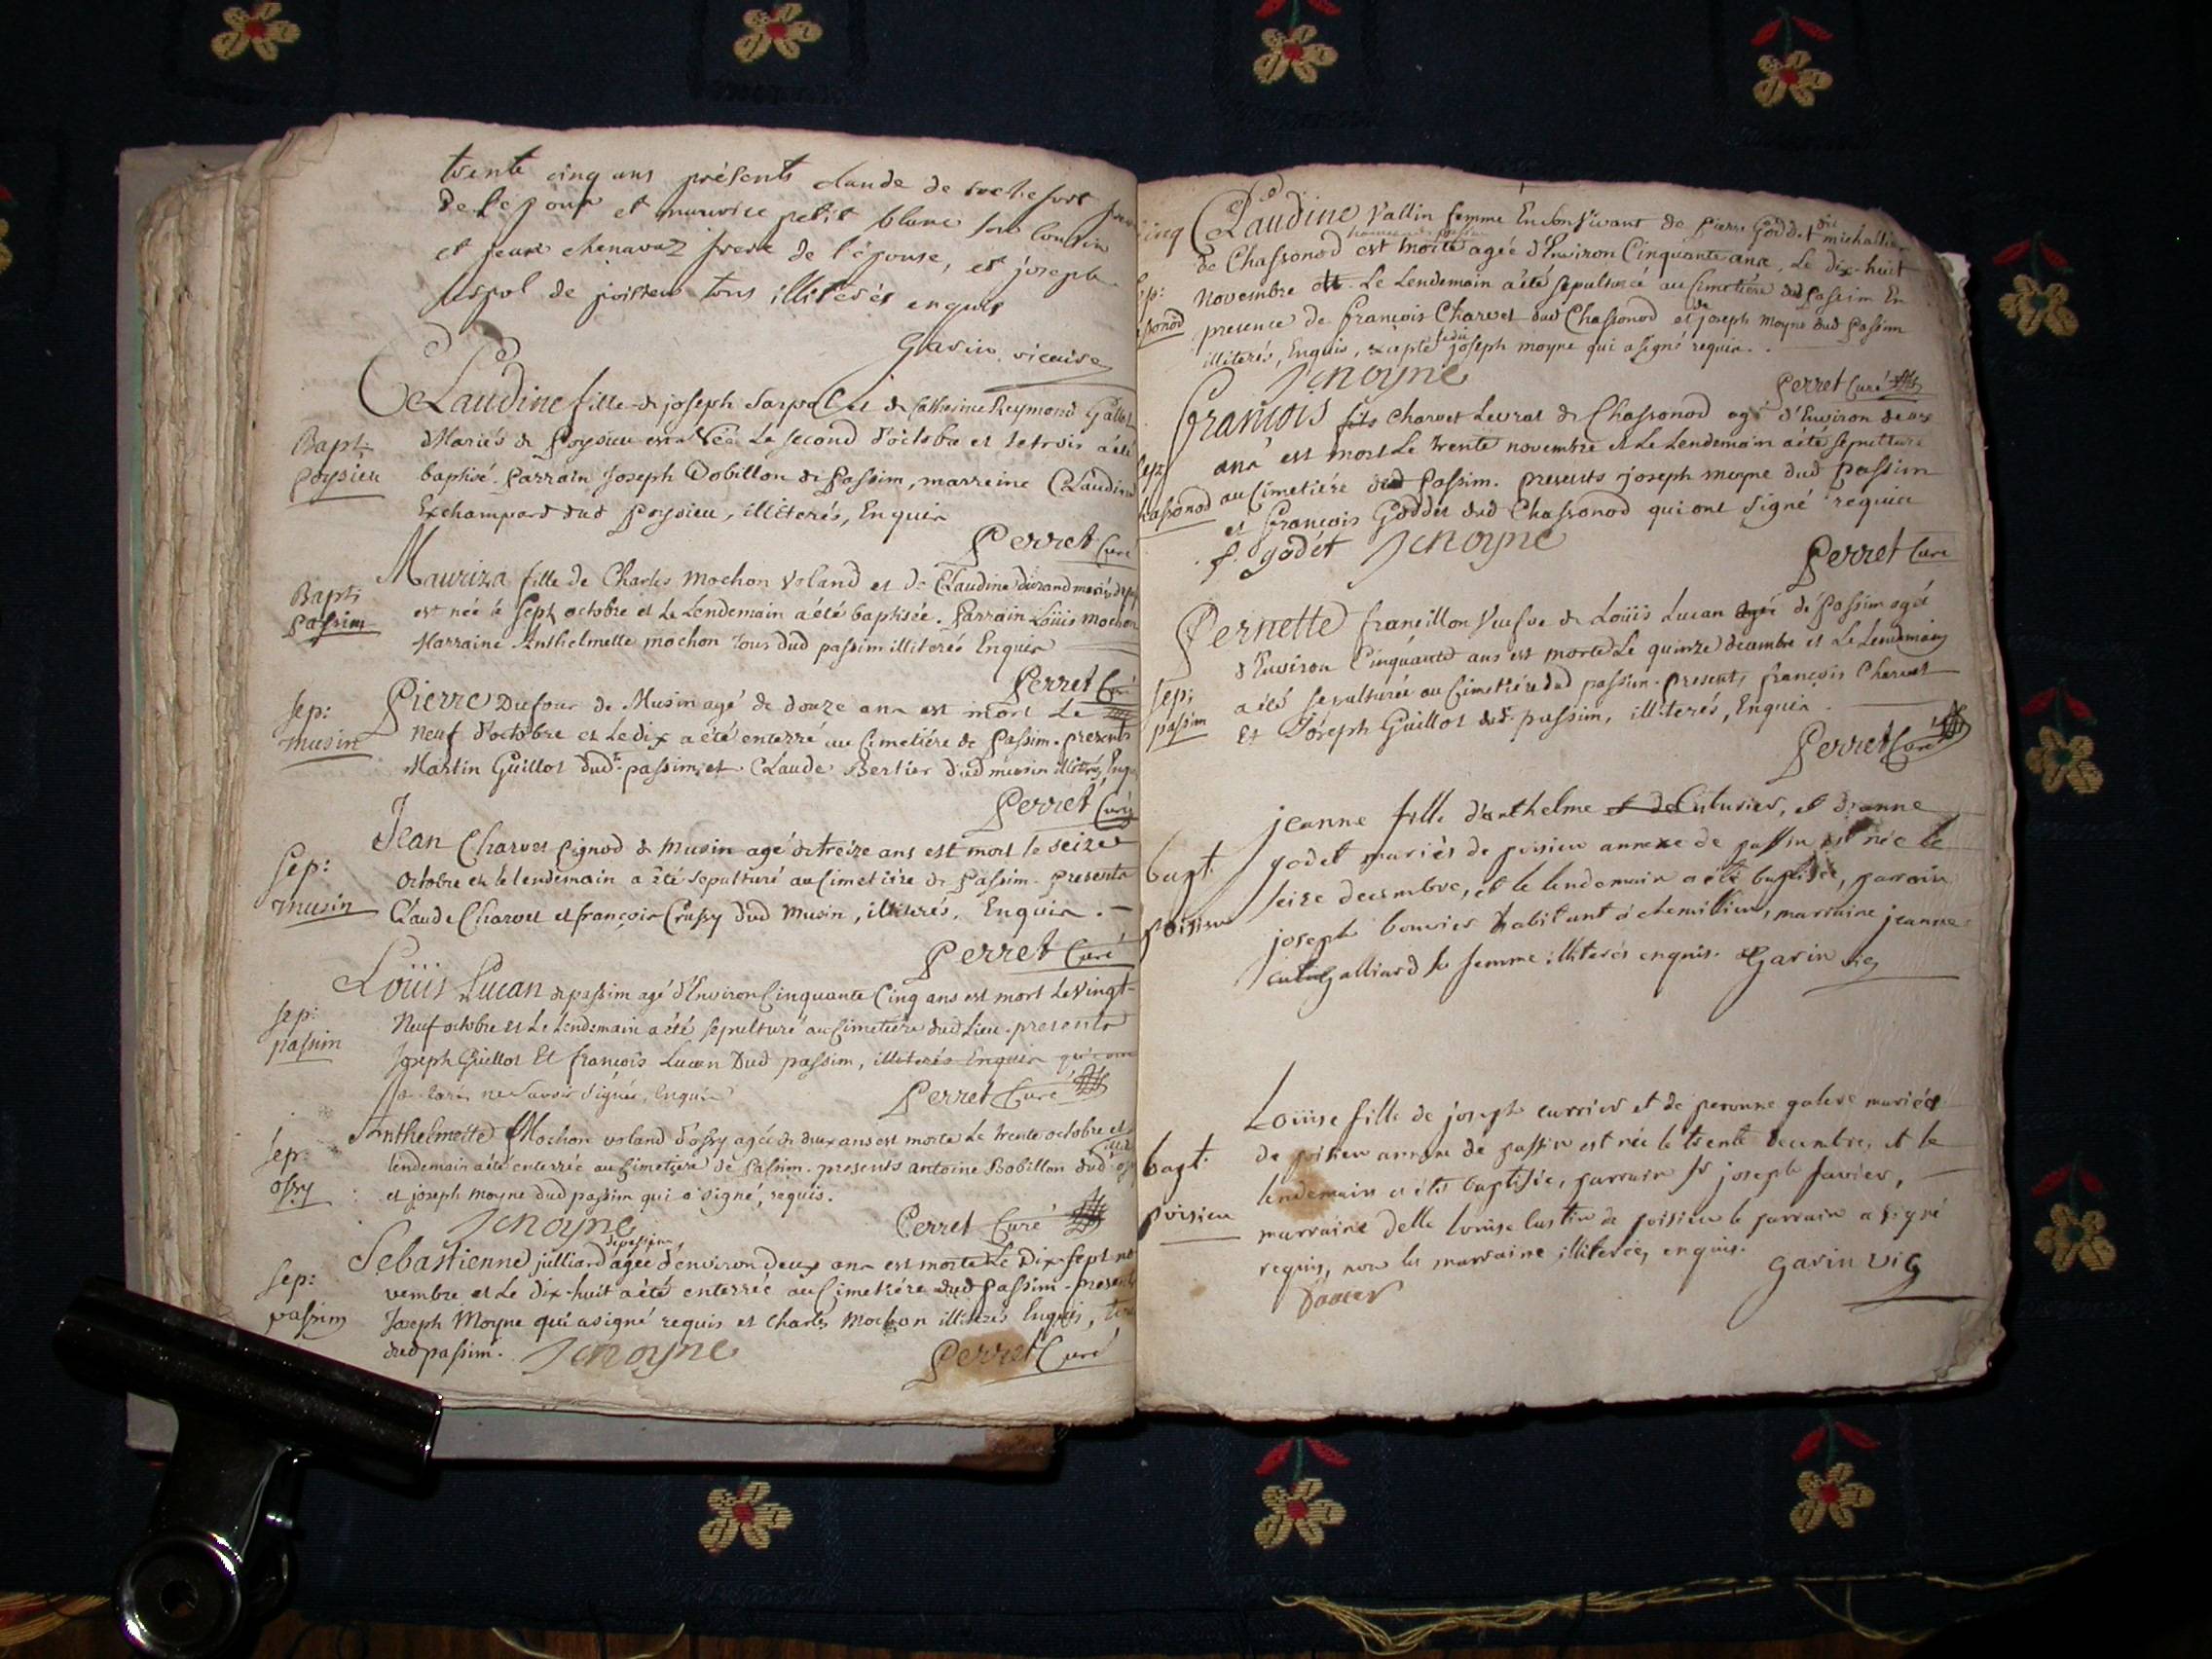 trente cinq ans présents claude de rochefort
de l'épour et maurice petit blanc son cousin
et jean chenavaz frere de l'épouse, et joseph
de poisieu tous illiterés enquis
Garin vicaire
Claudine fille de joseph et de Catherine Reymond
Bapt: Mariés de Poysieu est née Le second d'octobre et le trois a été
poysieu baptisé. Parrain Joseph Bobillon de Passim, marreine Claudine
Exchampard dud Poysieu, illiterés, Enquis
Perret Curé
Mauriza fille de Charles Mochon Voland et de Claudine durand mariés
Bapt: est née le sept octobre et le Lendemain a été baptisée. Parrain Loüis mochon
passim Marraine Anthelmette mochon tous dud passim illiterés Enquis
Perret Curé
Pierre Dufour de Musin agé de douze ans est mort Le
Sep: neuf d'octobre et Le dix a été enterré au Cimetiére de Passim. presents
musin Martin Guillot dud. passim, et Claude Bertier dud musin illiterés,
Perret Curé
Jean Charvet pignod de Musin agé de treize ans est mort le seize
Sep: Octobre et le lendemain a été sepulturé au Cimetiére de Passim. presents
musin Claude Charvet et françois Crussy dud Musin, illiterés, Enquis.
Perret Curé
Loüis Lucan de passim agé d'Environ Cinquante Cinq ans est mort Le Vingt-
sep: Neuf octobre et Le Lendemain a été sepulturé au Cimetiére dud Lieu. presents
passim Joseph Guillot Et françois Lucan Dud passim, illiterés Enquis
ne savoir signer, enquis
Perret Curé
Anthelmette Mochon voland d'ossy agée de deux ans est morte Le trente octobre et
Sep: lendemain a été enterrée au Cimetiere de Passim. presents antoine Bobillon dud
ossy et joseph moyne dud passim qui a signé, requis.
J moyne Perret Curé
de passim,
Sebastienne julliard agée d'environ deux ans est morte Le Dix-sept no
Sep: vembre et Le Dix-huit a été enterrée au Cimetiére dud Passim. presents
passim Joseph Moyne qui a signé requis et Charles Mochon illiterés Enquis,
dud passim. J moyne Perret Curé
Claudine Vallin femme En son Vivant de Pierre Goddet dit michallier
de Chassonod est morte agée d'Environ Cinquante ans, Le dix-huit
Novembre et Le Lendemain a été sepulturée au Cimetiére dud Passim En
presence de françois Charvet dud Chassonod et de joseph moyne dud Passim
illiterés, Enquis, excepté led. joseph moyne qui a signé requis.
J moyne Perret Curé
françois fils Charvet Levrat de Chassonod agé d'Environ deux
Sep: ans est mort Le trente novembre et Le Lendemain a été sepulturé
Chassonod au Cimetiére dud Passim. presents joseph moyne dud passim
et françois Goddet dud Chassonod qui ont signé requis
f. godet J moyne
Perret Curé
Pernette franeillon Veufve de Loüis Lucan agée de Passim agée
d'Environ Cinquante ans est morte Le quinze decembre et Le Lendemain
Sep: a été sepulturée au Cimetiére dud passim. presents françois Charvet
passim Et Joseph Guillot dud. passim, illiterés, Enquis.
Perret Curé
jeanne fille d'anthelme et de Cuturier, et d'anne
bapt. godet mariés de poisieu annexe de passin est née le
poisieu seize decembre, et le lendemain a été baptisée, parrain
joseph bouvier habitant à chemillieu, marraine jeanne
galliard sa femme illiterés enquis. Garin vic
Loüise fille de joseph currier et de peronne galere mariés
bapt. de poisieu annexe de passin est née le trente decembre, et le
poisieu lendemain a été baptisée, parrain sr joseph favier,
marraine delle louise lustin de poisieu le parrain a signé
requis, non la marraine illiterée, enquise.
favier Garin vic